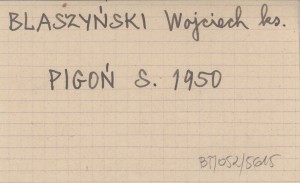 BLASZYŃSKI Wojciech ks.
PIGOŃ S. 1950
BJ/052/5615